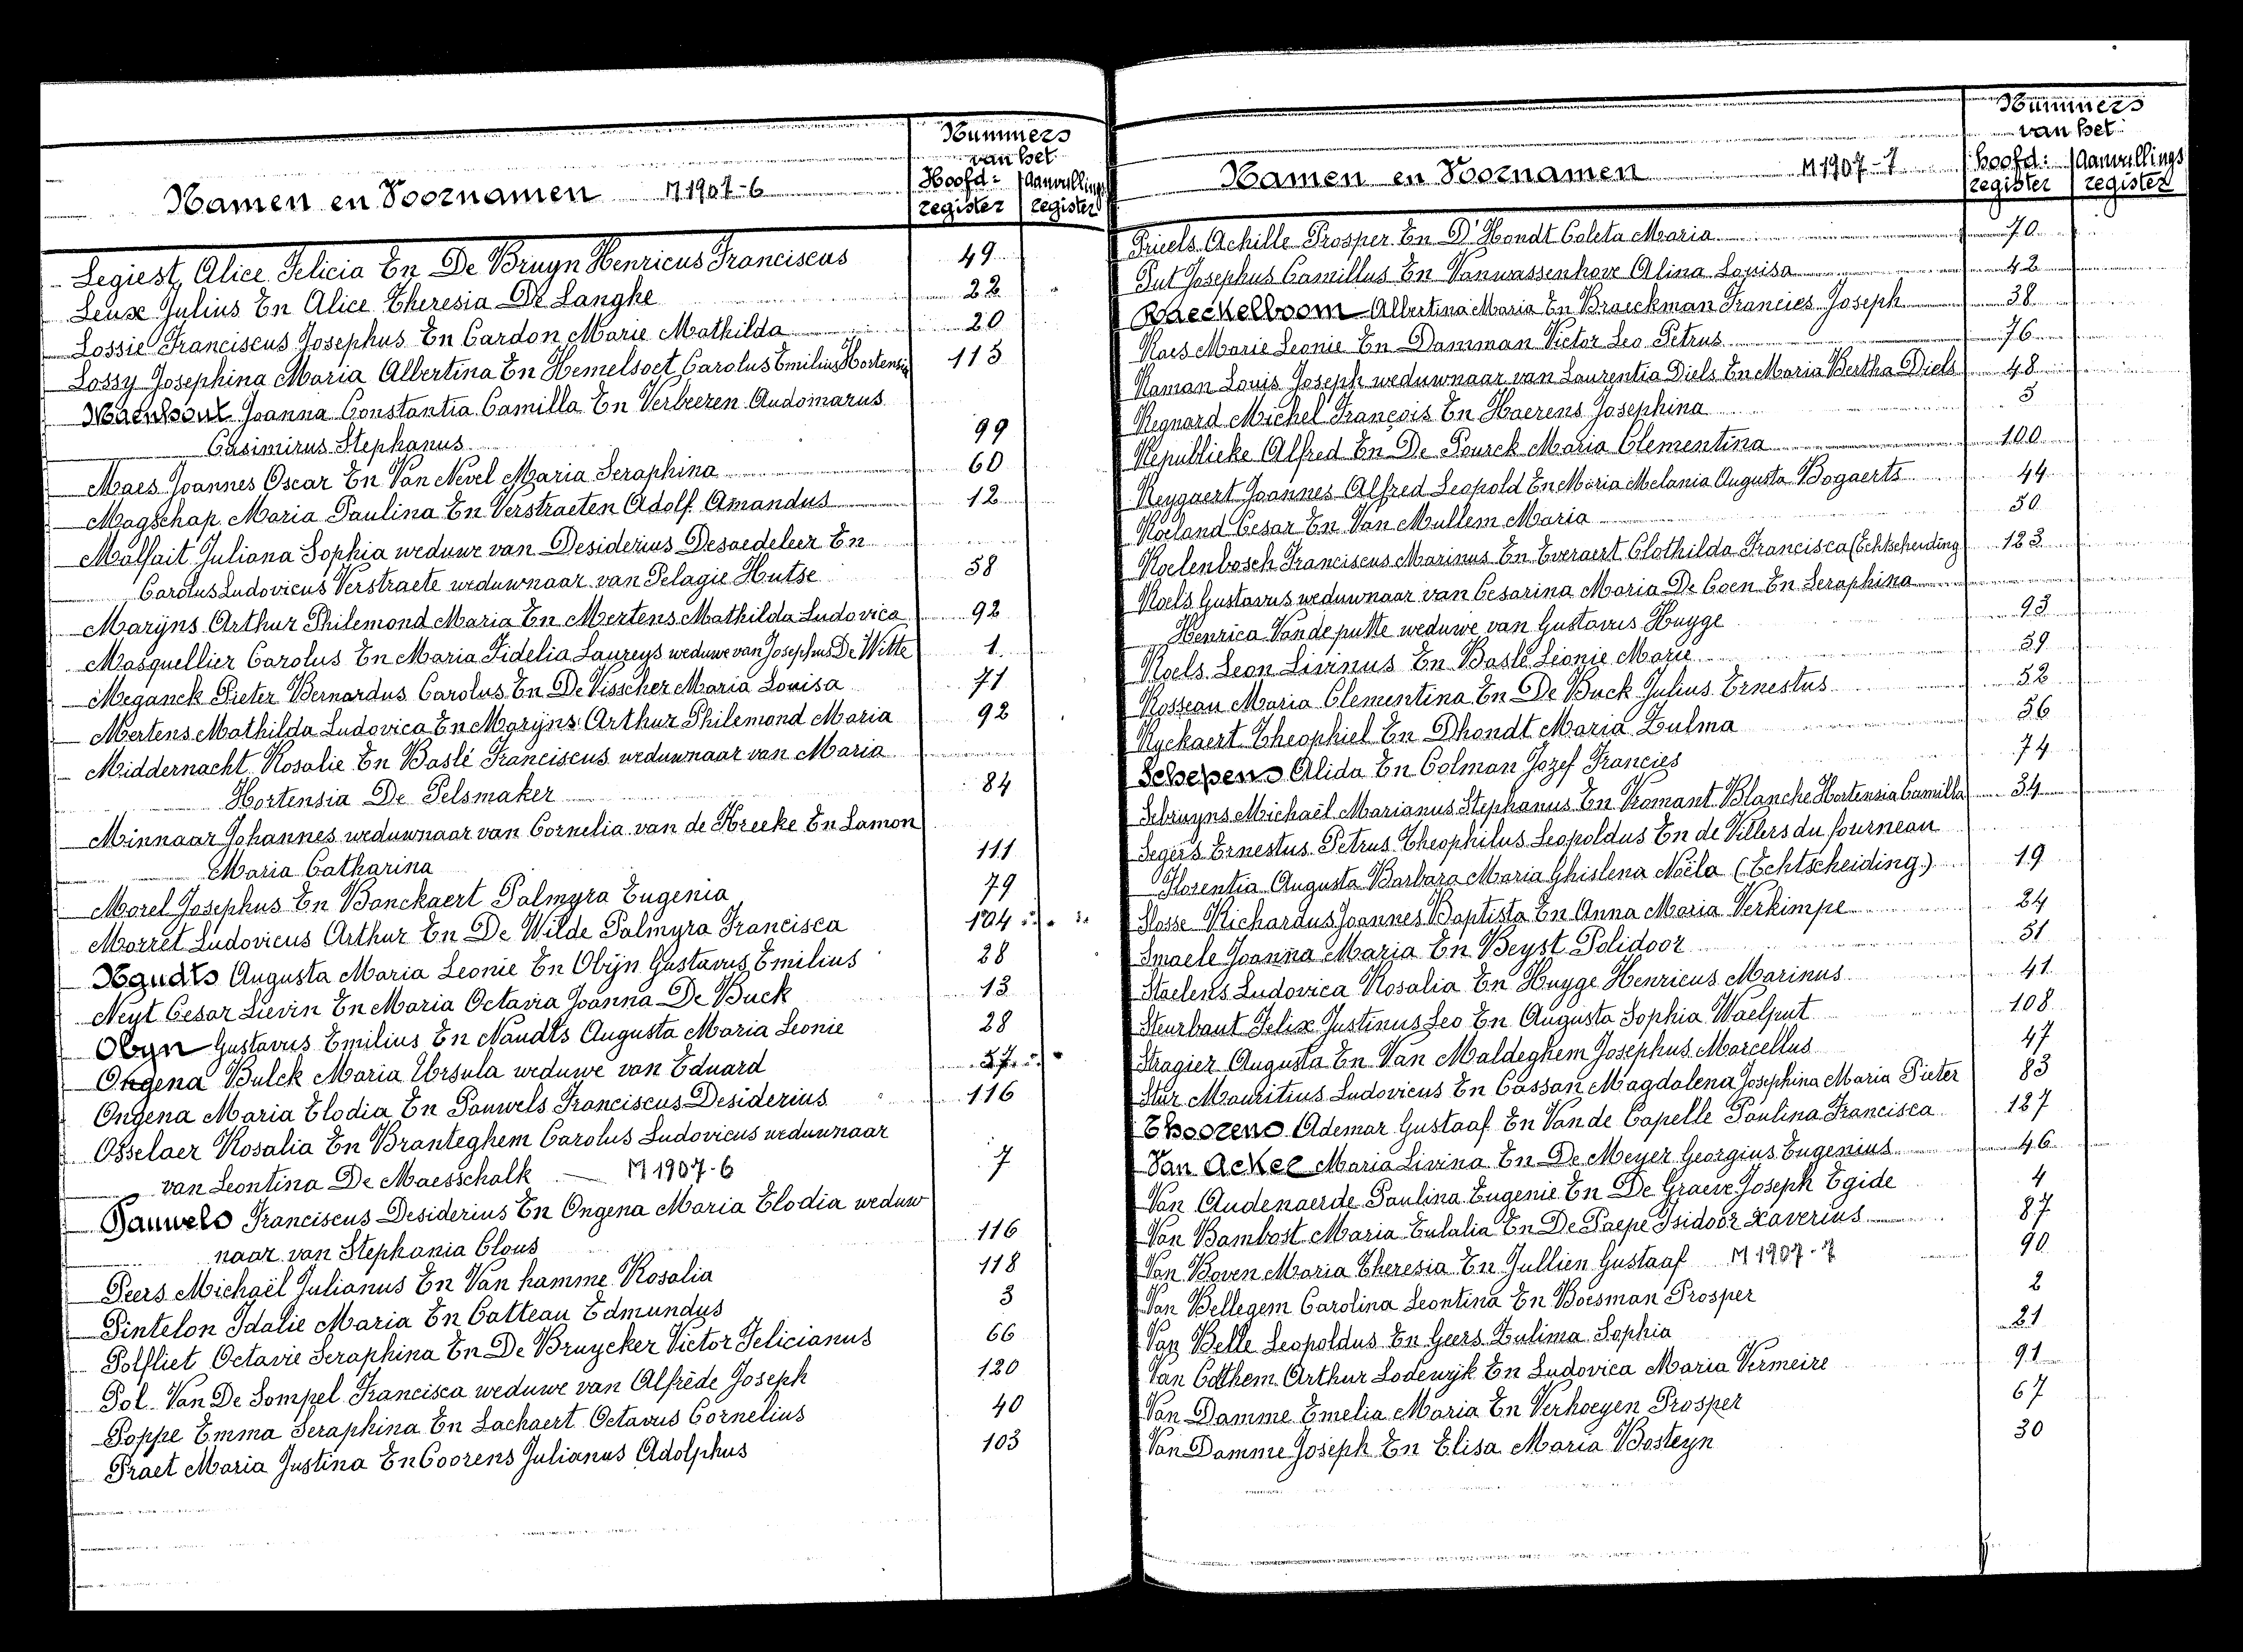 Nummers
van het
Namen en Voornamen M 1907-6 Hoofd: Aanvullings
register register
Legiest, Alice Felicia En De Bruyn Henricus Franciscus 49
Leuse Julius En Alice Theresia De Langhe 22
Lossie Franciscus Josephus En Cardon Marie Mathilda 20
Lossy Josephina Maria Albertina En Hemelsoet Carolus Emilius Hortensia 113
Maenhout Joanna Constantia Camilla En Verbeeren Audomarus
Casimirus Stephanus 99
Maes Joannes Oscar En Van Nevel Maria Seraphina 60
Magschap Maria Paulina En Verstraeten Adolf Amandus 12
Malfait Juliana Sophia weduwe van Desiderius Desaedeleer En
Carolus Ludovicus Verstraete weduwnaar van Pelagie Hutse 58
Marijns Arthur Philemond Maria En Mertens Mathilda Ludovica 92
Masquellier Carolus En Maria Fidelia Laureys weduwe van Josephus De Witte 1
Meganck Pieter Bernardus Carolus En De Visscher Maria Louisa 71
Mertens Mathilda Ludovica En Marijns Arthur Philemond Maria 92
Middernacht Rosalie En Baslé Franciscus weduwnaar van Maria
Hortensia De Pelsmaker 84
Minnaar Johannes weduwnaar van Cornelia van de Kreeke En Lamon
Maria Catharina 111
Morel Josephus En Banckaert Palmyra Eugenia 79
Morret Ludovicus Arthur En De Wilde Palmyra Francisca 104
Naudts Augusta Maria Leonie En Obijn Gustavus Emilius 28
Neyt Cesar Lievin En Maria Octavia Joanna De Buck 13
Obyn Gustavus Emilius En Naudts Augusta Maria Leonie 28
Ongena Bulck Maria Ursula weduwe van Eduard 57
Ongena Maria Elodia En Pauwels Franciscus Desiderius 116
Osselaer Rosalia En Branteghem Carolus Ludovicus weduwnaar
van Leontina De Maesschalk M 1907-6 7
Pauwels Franciscus Desiderius En Ongena Maria Elodia weduw
naar van Stephania Claus 116
Peers Michaël Julianus En Van hamme Rosalia 118
Pintelon Idalie Maria En Catteau Edmundus 3
Polfliet Octavie Seraphina En De Bruycker Victor Felicianus 66
Pol Van De Sompel Francisca weduwe van Alfrède Joseph 120
Poppe Emma Seraphina En Lachaert Octavus Cornelius 40
Praet Maria Justina En Coorens Julianus Adolphus 103
Nummers
van het
Namen en Voornamen M 1907-7 hoofd: Aanvullings
register register
Priels Achille Prosper En D'Hondt Coleta Maria 70
Put Josephus Camillus En Vanwassenhove Alina Louisa 42
Raeckelboom Albertina Maria En Braeckman Francies Joseph 38
Raes Marie Leonie En Damman Victor Leo Petrus 76
Raman Louis Joseph weduwnaar van Laurentia Diels En Maria Bertha Diels 48
Regnard Michel François En Haerens Josephina 5
Republieke Alfred En De Pourck Maria Clementina 100
Reygaert Joannes Alfred Leopold En Maria Melania Augusta Bogaerts 44
Roeland Cesar En Van Mullem Maria 50
Roelenbosch Franciscus Marinus En Everaert Clothilda Francisca (Echtscheiding 123
Roels Gustavus weduwnaar van Cesarina Maria De Coen En Seraphina
Henrica Vandeputte weduwe van Gustavus Huyge 93
Roels Leon Livinus En Baslé Leonie Marie 39
Rosseau Maria Clementina En De Buck Julius Ernestus 52
Ryckaert Theophiel En Dhondt Maria Zulma 56
Schepens Alida En Colman Jozef Francies 74
Sebruyns Michaël Marianus Stephanus En Romant Blanche Hortensia Camilla 34
Segers Ernestus Petrus Theophilus Leopoldus En de Villers du fourneau
Florentia Augusta Barbara Maria Ghislena Noëla (Echtscheiding) 19
Slosse Richardus Joannes Baptista En Anna Maria Verkimpe 24
Smaele Joanna Maria En Beyst Polidoor 51
Staelens Ludovica Rosalia En Huyge Henricus Marinus 41
Steurbaut Felix Justinus Leo En Augusta Sophia Waelput 108
Stragier Augusta En Van Maldeghem Josephus Marcellus 47
Stur Mauritius Ludovicus En Cassan Magdalena Josephina Maria Pieter 83
Thoorens Ademar Gustaaf En Van de Capelle Paulina Francisca 127
Van Acker Maria Livina En De Meyer Georgius Eugenius 46
Van Audenaerde Paulina Eugenie En De Graeve Joseph Egide 4
Van Bambost Maria Eulalia En De Paepe Isidoor Xaverius 87
Van Boven Maria Theresia En Jullien Gustaaf M 1907-7 90
Van Bellegem Carolina Leontina En Boesman Prosper 2
Van Belle Leopoldus En Geers Zulima Sophia 21
Van Cotthem Arthur Lodewijk En Ludovica Maria Vermeire 91
Van Damme Emelia Maria En Verhoeyen Prosper 67
Van Damme Joseph En Elisa Maria Bosteyn 30